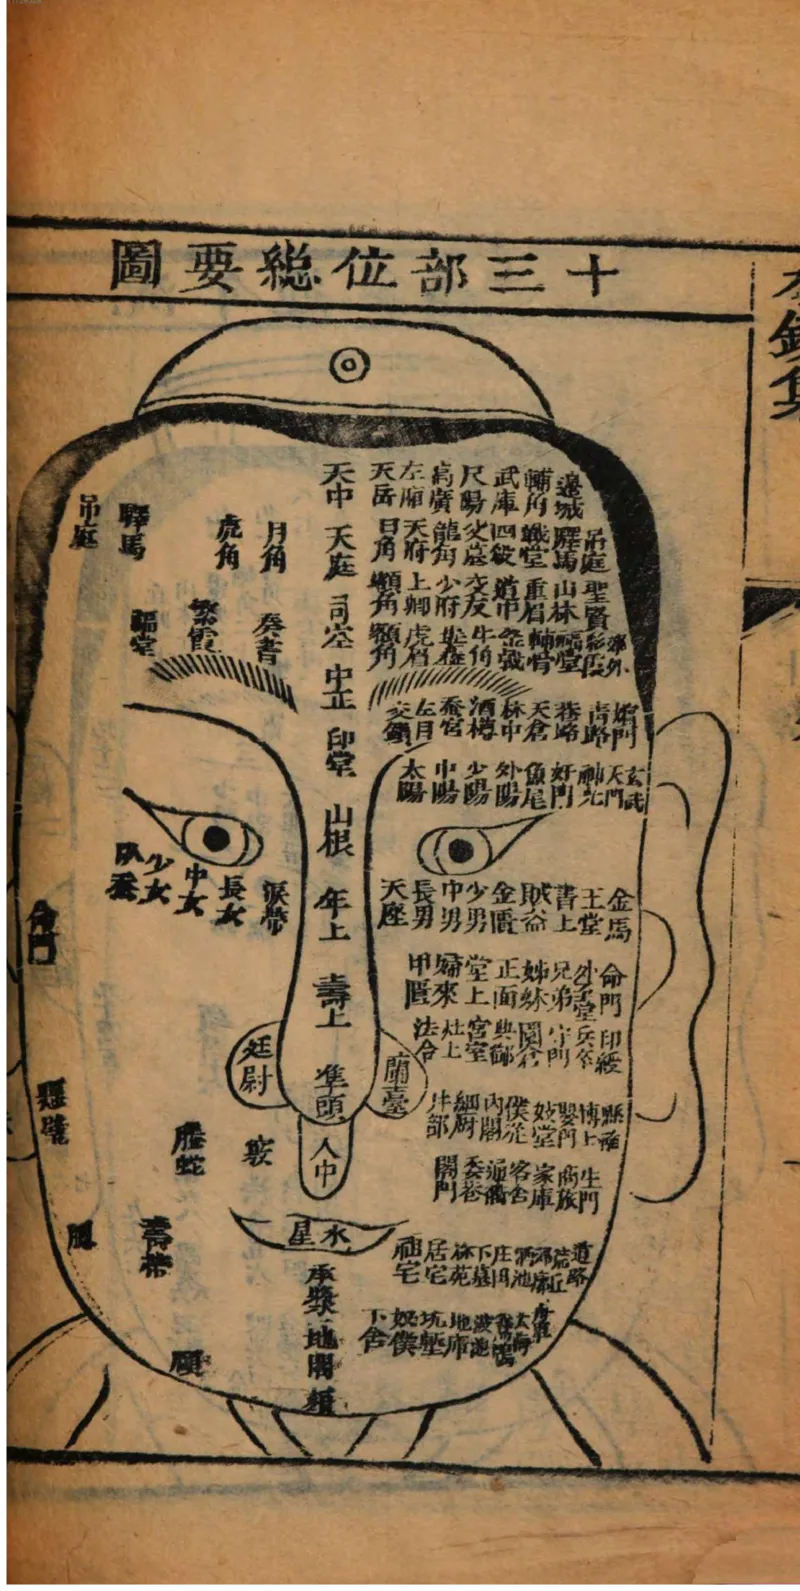 十三部位總要圖
天中
天庭
司空
中正
印堂
山根
年上
壽上
準頭
人中
水星
承漿
地閣
頦
天岳
左廂
高廣
尺陽
武庫
輔角
邊城
日角
天府
龍角
交墓
四殺
戰堂
驛馬
吊庭
額角
上卿
少府
交友
道中
重眉
山林
聖賢
額角
虎眉
牛角
輔骨
福堂
郊外
交鎖
左目
蚕宮
酒樽
林中
天倉
巷路
青路
太陽
中陽
少陽
外陽
魚尾
奸門
神光
天門
玄武
天座
長男
中男
少男
金匱
書上
王堂
金馬
甲匱
歸來
堂上
正面
姊妹
兄弟
命門
法合
灶上
宮室
典御
守門
兵卒
印綬
井部
細廚
內閣
妓堂
嬰門
博上
懸壁
閣門
委巷
客舍
家庫
商旅
生門
祖宅
居宅
林苑
下墓
庄田
酒池
荒丘
道路
下舍
奴僕
坑塹
地庫
大海
月角
虎角
驛馬
吊庭
奏書
繁霞
福堂
淚帶
長女
中女
少女
臥蚕
命門
廷尉
蘭臺
懸壁
螣蛇
壽帶
頤